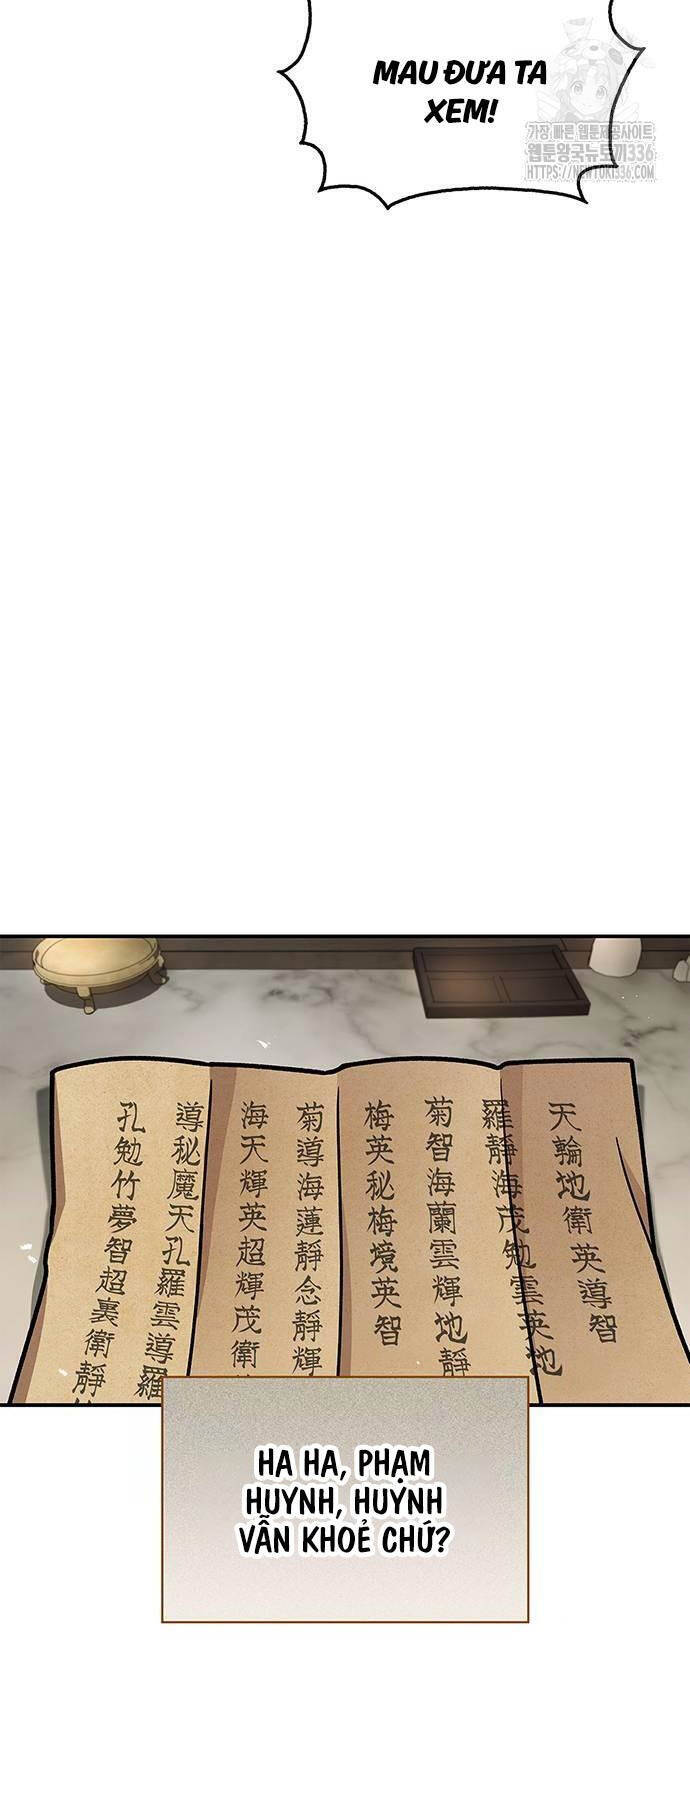 MAU ĐƯA TA
XEM!
가장 빠른 웹툰제공사이트
웹툰왕국뉴토끼336
HTTPS://NEWTOKI336
天輪地衛英導智
羅靜海茂勉雲英地
菊智海蘭雲輝地靜
梅英秘梅境英智
菊導海蓮靜念靜輝
海天輝英超輝茂衛
導秘魔天孔羅雲導羅
孔勉竹夢智超裏衛靜
HA HA, PHẠM
HUYNH, HUYNH
VẪN KHOẺ CHỨ?